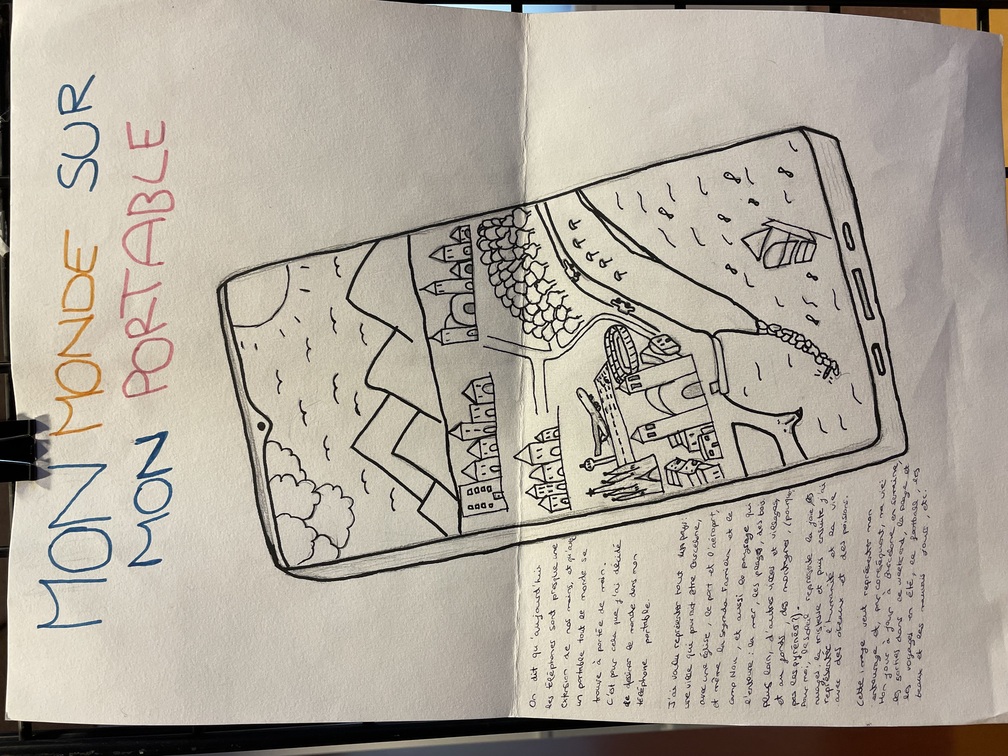 MON MONDE SUR
MON PORTABLE
On dit qu'aujourd'hui
les téléphones sont presque une
extension de nos mains, et qu'avec
un portable tout le monde se
trouve à portée de main.
C'est pour cela que j'ai décidé
de faire le monde dans mon
téléphone portable.
J'ai voulu représenter tout un pays:
une ville qui pourait être Barcelone,
avec une église, le port et l'aéroport,
et même la Sagrada Familia et le
Camp Nou, et aussi le paysage qui
l'entoure: la mer, les plages, des bois
plus loin, d'autres villes et villages
et au fond, des montagnes (pourquoi
pas les pyrénées?).
Pour moi, le soleil représente la joie, les
nuages, la tristesse et puis ensuite j'ai
représenté l'humanité et la vie
avec des oiseaux et des poissons.
Cette image veut représenter mon
entourage et, par conséquent, ma vie:
mon jour à jour à Barcelone en semaine,
les sorties dans le weekend, la plage et
les voyages en été, le football, les
beaux et les mauvais jours, etc.